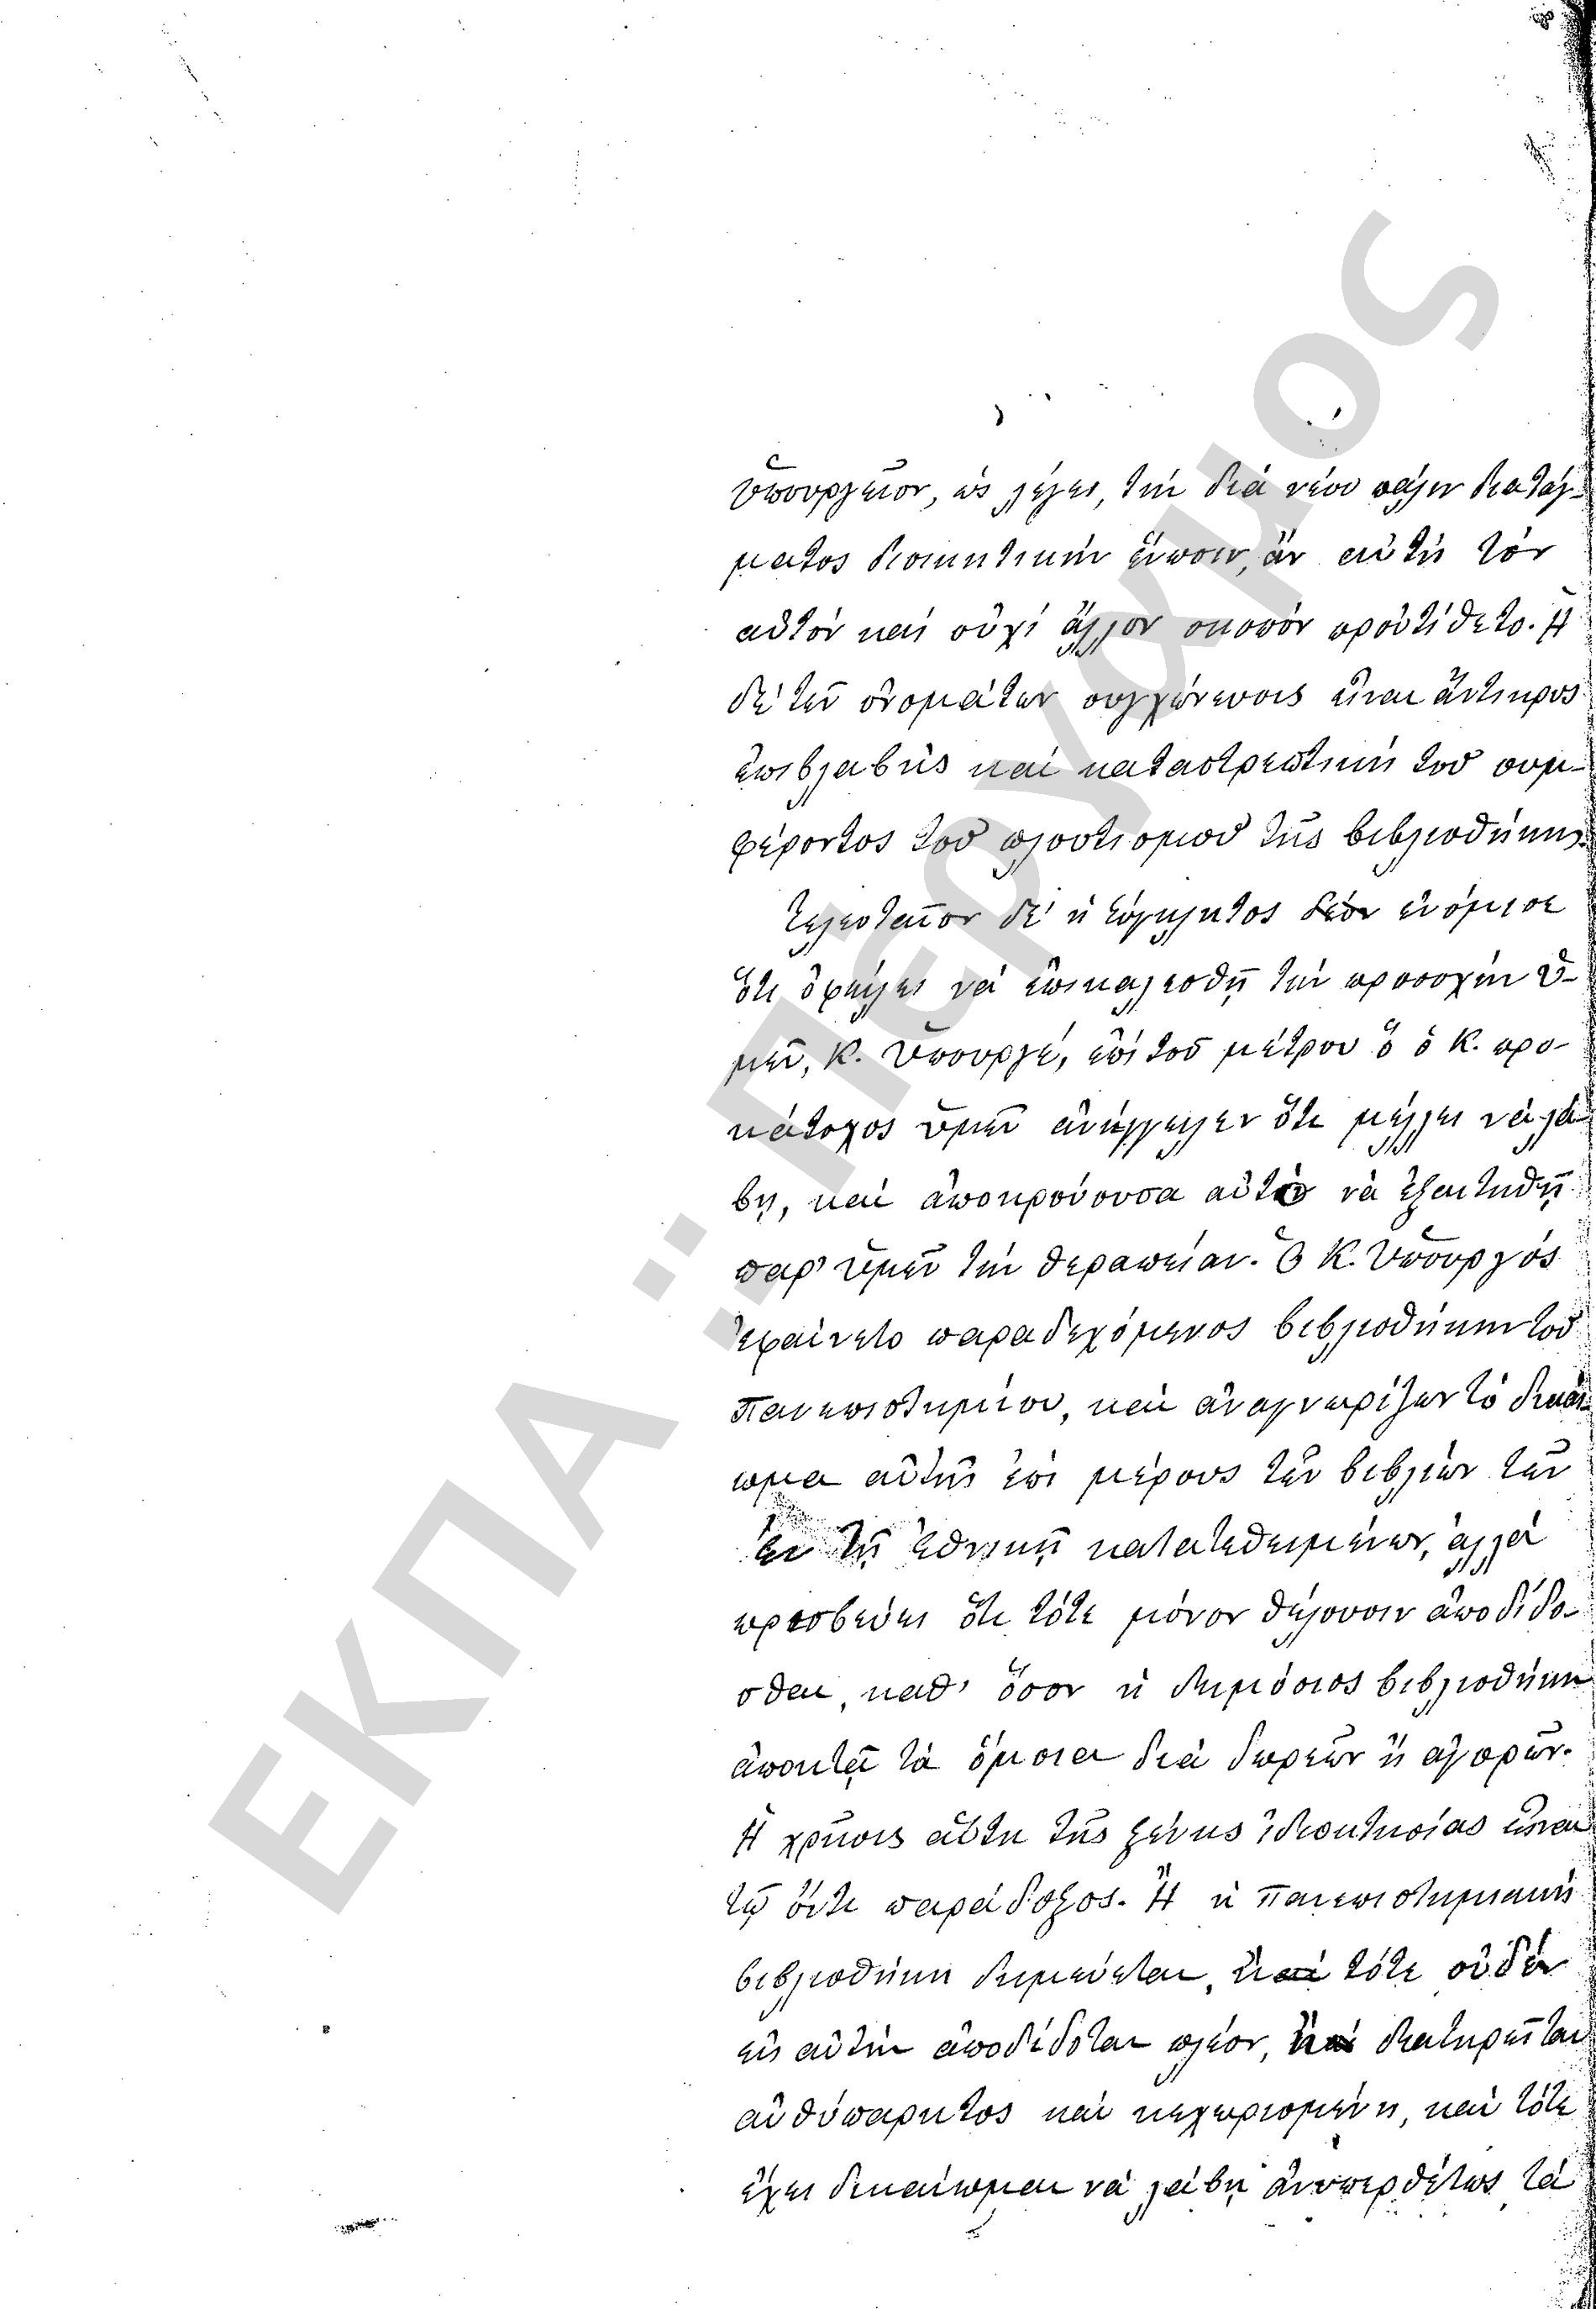 ὑπουργεῖον, ὡς λέγει, τὴν διὰ νέου πάλιν διατάγ-
ματος διοικητικὴν ἕνωσιν, ἂν αὐτὴ τὸν
αὐτὸν καὶ οὐχὶ ἄλλον σκοπὸν προὐτίθετο. Ἡ
δὲ τῶν ὀνομάτων συγχώνευσις εἶναι ἄντικρυς
ἐπιβλαβὴς καὶ καταστρεπτικὴ τοῦ συμ-
φέροντος τοῦ πλουτισμοῦ τῆς βιβλιοθήκης.
Τελευταῖον δὲ ἡ σύγκλητος ἐνόμισε
ὅτι ὀφείλει νὰ ἐπικαλεσθῇ τὴν προσοχὴν ὑ-
μῶν, Κ. Ὑπουργέ, ἐπὶ τοῦ μέτρου ὃ ὁ Κ. προ-
κάτοχος ὑμῶν ἀνήγγειλεν ὅτι μέλλει νὰ λά-
βῃ, καὶ ἀποκρούουσα αὐτὸ νὰ ἐξαιτηθῇ
παρ' ὑμῶν τὴν θεραπείαν. Ὁ Κ. Ὑπουργὸς
ἐφαίνετο παραδεχόμενος βιβλιοθήκην τοῦ
Πανεπιστημίου, καὶ ἀναγνωρίζων τὸ δικαί-
ωμα αὐτῆς ἐπὶ μέρους τῶν βιβλίων τῶν
ἐν τῇ Ἐθνικῇ κατατεθειμένων, ἀλλὰ
πρεσβεύει ὅτι τότε μόνον θέλουσιν ἀποδίδο-
σθαι, καθ' ὅσον ἡ δημόσιος βιβλιοθήκη
ἀποκτᾷ τὰ ὅμοια διὰ δωρεῶν ἢ ἀγορῶν.
Ἡ χρῆσις αὕτη τῆς ξένης ἰδιοκτησίας εἶναι
τῷ ὄντι παράδοξος. Ἢ ἡ Πανεπιστημιακὴ
βιβλιοθήκη δημεύεται, καὶ τότε οὐδὲν
εἰς αὐτὴν ἀποδίδοται πλέον, ἢ διατηρεῖται
αὐθύπαρκτος καὶ κεχωρισμένη, καὶ τότε
ἔχει δικαίωμα νὰ λάβῃ ἀνυπερθέτως τὰ
ΕΚΠΑ: Πέργαμος